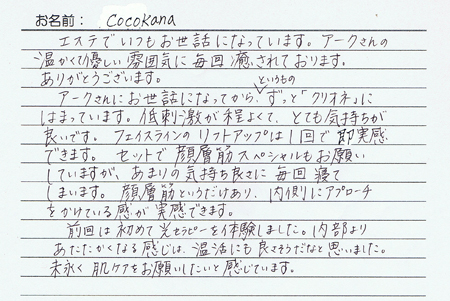 お名前： Cocokana
エステでいつもお世話になっています。アークさんの
温かくて優しい雰囲気に毎回癒されております。
ありがとうございます。
アークさんにお世話になってからというもの、ずっと「クリオネ」に
はまっています。低刺激が程よくて、とても気持ちが
良いです。フェイスラインのリフトアップは1回で即実感
できます。セットで顔層筋スペシャルもお願い
していますが、あまりの気持ち良さに毎回寝て
しまいます。顔層筋というだけあり、内側にアプローチ
をかけている感が実感できます。
前回は初めて光セラピーを体験しました。内部より
あたたかくなる感じは、温活にも良さそうだなと思いました。
末永く肌ケアをお願いしたいと感じています。